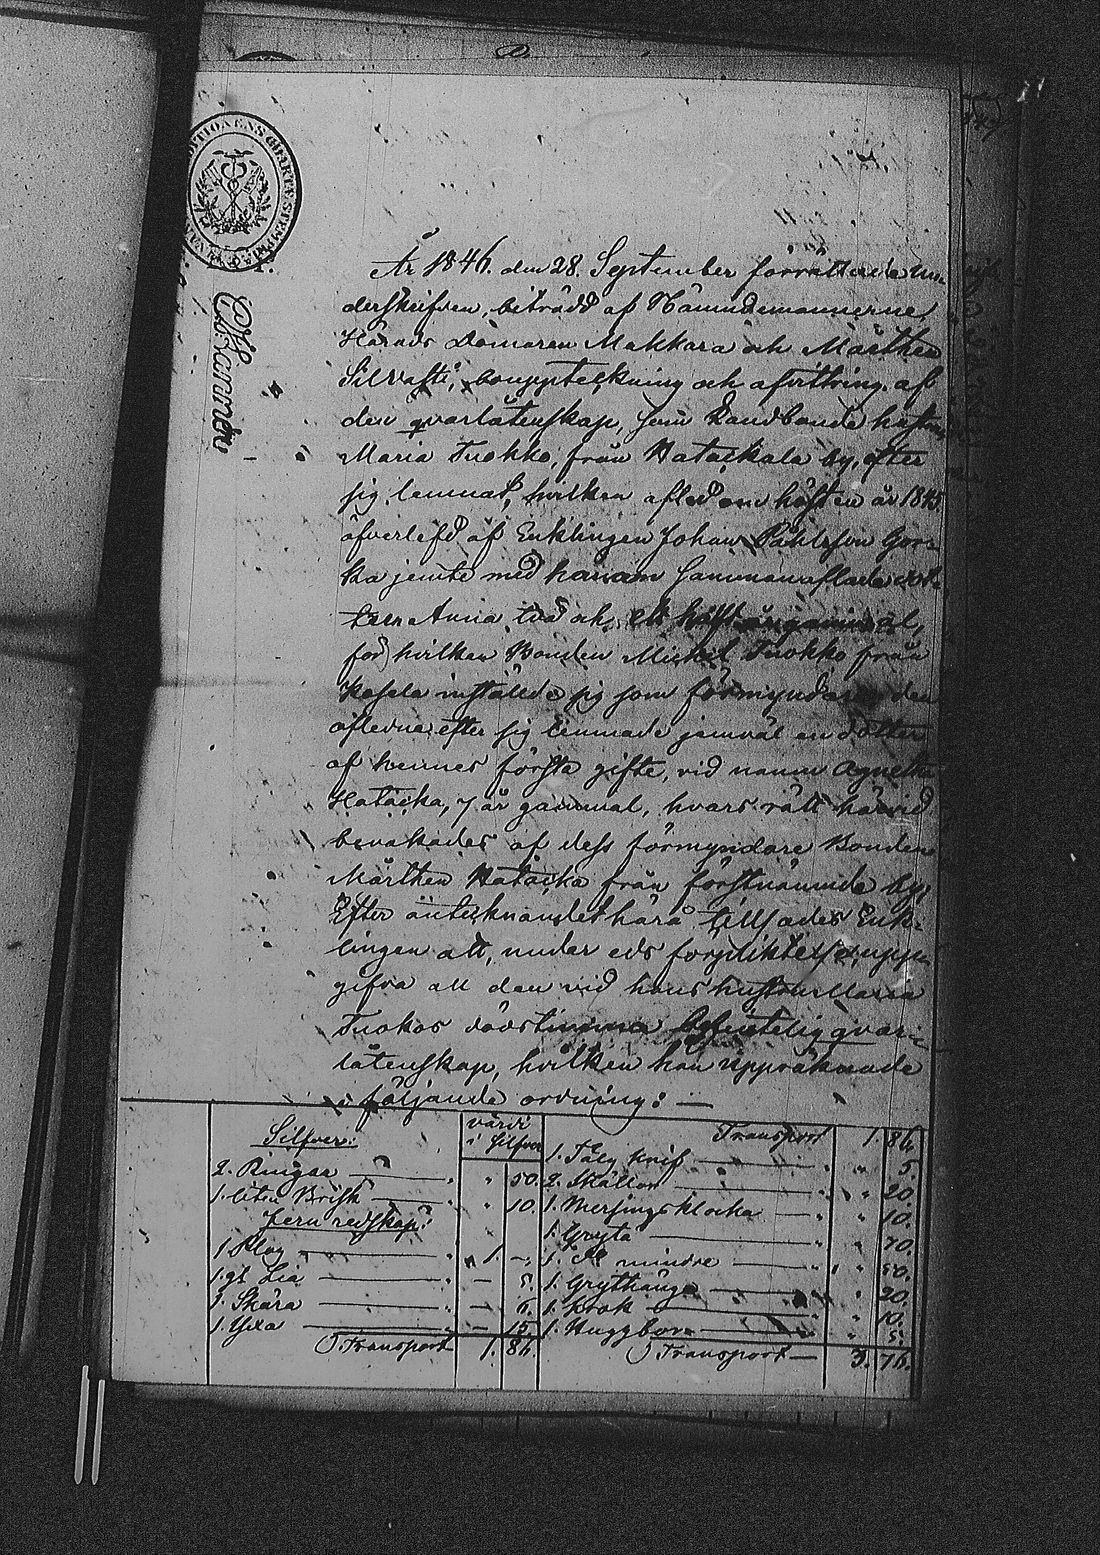 År 1846. den 28. September förrättade un-
derskrifven, biträdd af Nämndemännerne,
Härads Domaren Makkara och Mårthen
Silvasti, bouppteckning och afvittring af
den qvarlåtenskap, som Landbonde hustrun
Maria Tuokko, från Hatackala by, efter
sig lemnat, hvilken afled om hösten år 1845
öfverlefd af Enklingen Johan Påhlsson
ka jemte med honom sammanaflade dot-
tern Anna två och ett hälft år gammal,
för hvilken Bonden Michel Tuokko från
inställde sig som förmyndare, den
aflidna efter sig lemnade jemväl en dotter
af hennes första gifte, vid namn Agnetha
Hatacka, 7 år gammal, hvars rätt härvid
bevakades af dess förmyndare Bonden
Mårthen Hatacka från förstnämnde by,
Efter antecknandet härå tillsades Enk-
lingen att, under eds förpliktelse, upp-
gifva all den vid hans hustru Maria
Tuokos dödstimma befintelig qvar-
låtenskap, hvilken han uppräknade
i följande ordning: —
värdi
i Silfver
Silfver:
2. Ringar — " 50.
1. liten Brisk — " 10.
Jern redskap:
1 Plog — " 1. —
1. gl. Lia — " — 5.
1. Skära — " — 6.
1. Yxa — " — 15.
Transport 1. 86.
Transport 1. 86.
1. Tälg knif — " " 5.
2. Skållor — " " 20.
1. Messings klocka — " " 10.
1. Gryta — " " 70.
1. d:o mindre — " " 50.
1. Grythänge — " " 20.
1. Krok — " " 10.
1. Huggborr — " " 5.
Transport — 3. 76.